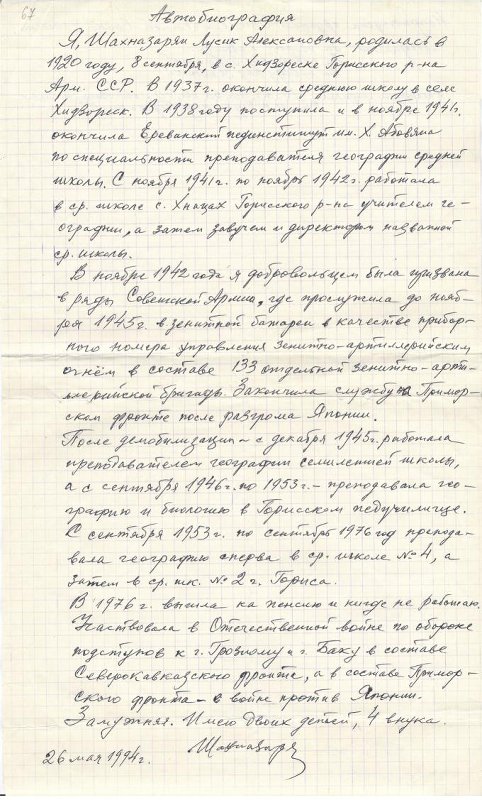 67
Автобиография
Я, Шахназарян Лусик Алексановна, родилась в
1920 году, 8 сентября, в с. Хндзореске Горисского р-на
Арм. ССР. В 1937г. окончила среднюю школу в селе
Хндзореск. В 1938 году поступила и в ноябре 1941г.
окончила Ереванский пединститут им. Х. Абовяна
по специальности преподавателя географии средней
школы. С ноября 1941г. по ноябрь 1942г. работала
в ср. школе с. Хнацах Горисского р-на учителем ге-
ографии, а затем завучем и директором названной
ср. школы.
В ноябре 1942 года я добровольцем была призвана
в ряды Советской Армии, где прослужила до нояб-
ря 1945г. в зенитной батареи в качестве прибор-
ного номера управления зенитно-артиллерийским
огнём в составе 133 отдельной зенитно-арти-
ллерийской бригады. Закончила службу на Примор-
ском фронте после разгрома Японии.
После демобилизации – с декабря 1945г. работала
преподавателем географии семилетней школы,
а с сентября 1946г. по 1953г. – преподавала гео-
графию и биологию в Горисском педучилище.
С сентября 1953г. по сентябрь 1976 год препода-
вала географию сперва в ср. школе №4, а
затем в ср. шк. №2 г. Гориса.
В 1976г. вышла на пенсию и нигде не работаю.
Участвовала в Отечественной войне по обороне
подступов к г. Грозному и г. Баку в составе
Северокавказского фронта, а в составе Примор-
ского фронта – в войне против Японии.
Замужняя. Имею двоих детей, 4 внука.
26 мая 1994г.